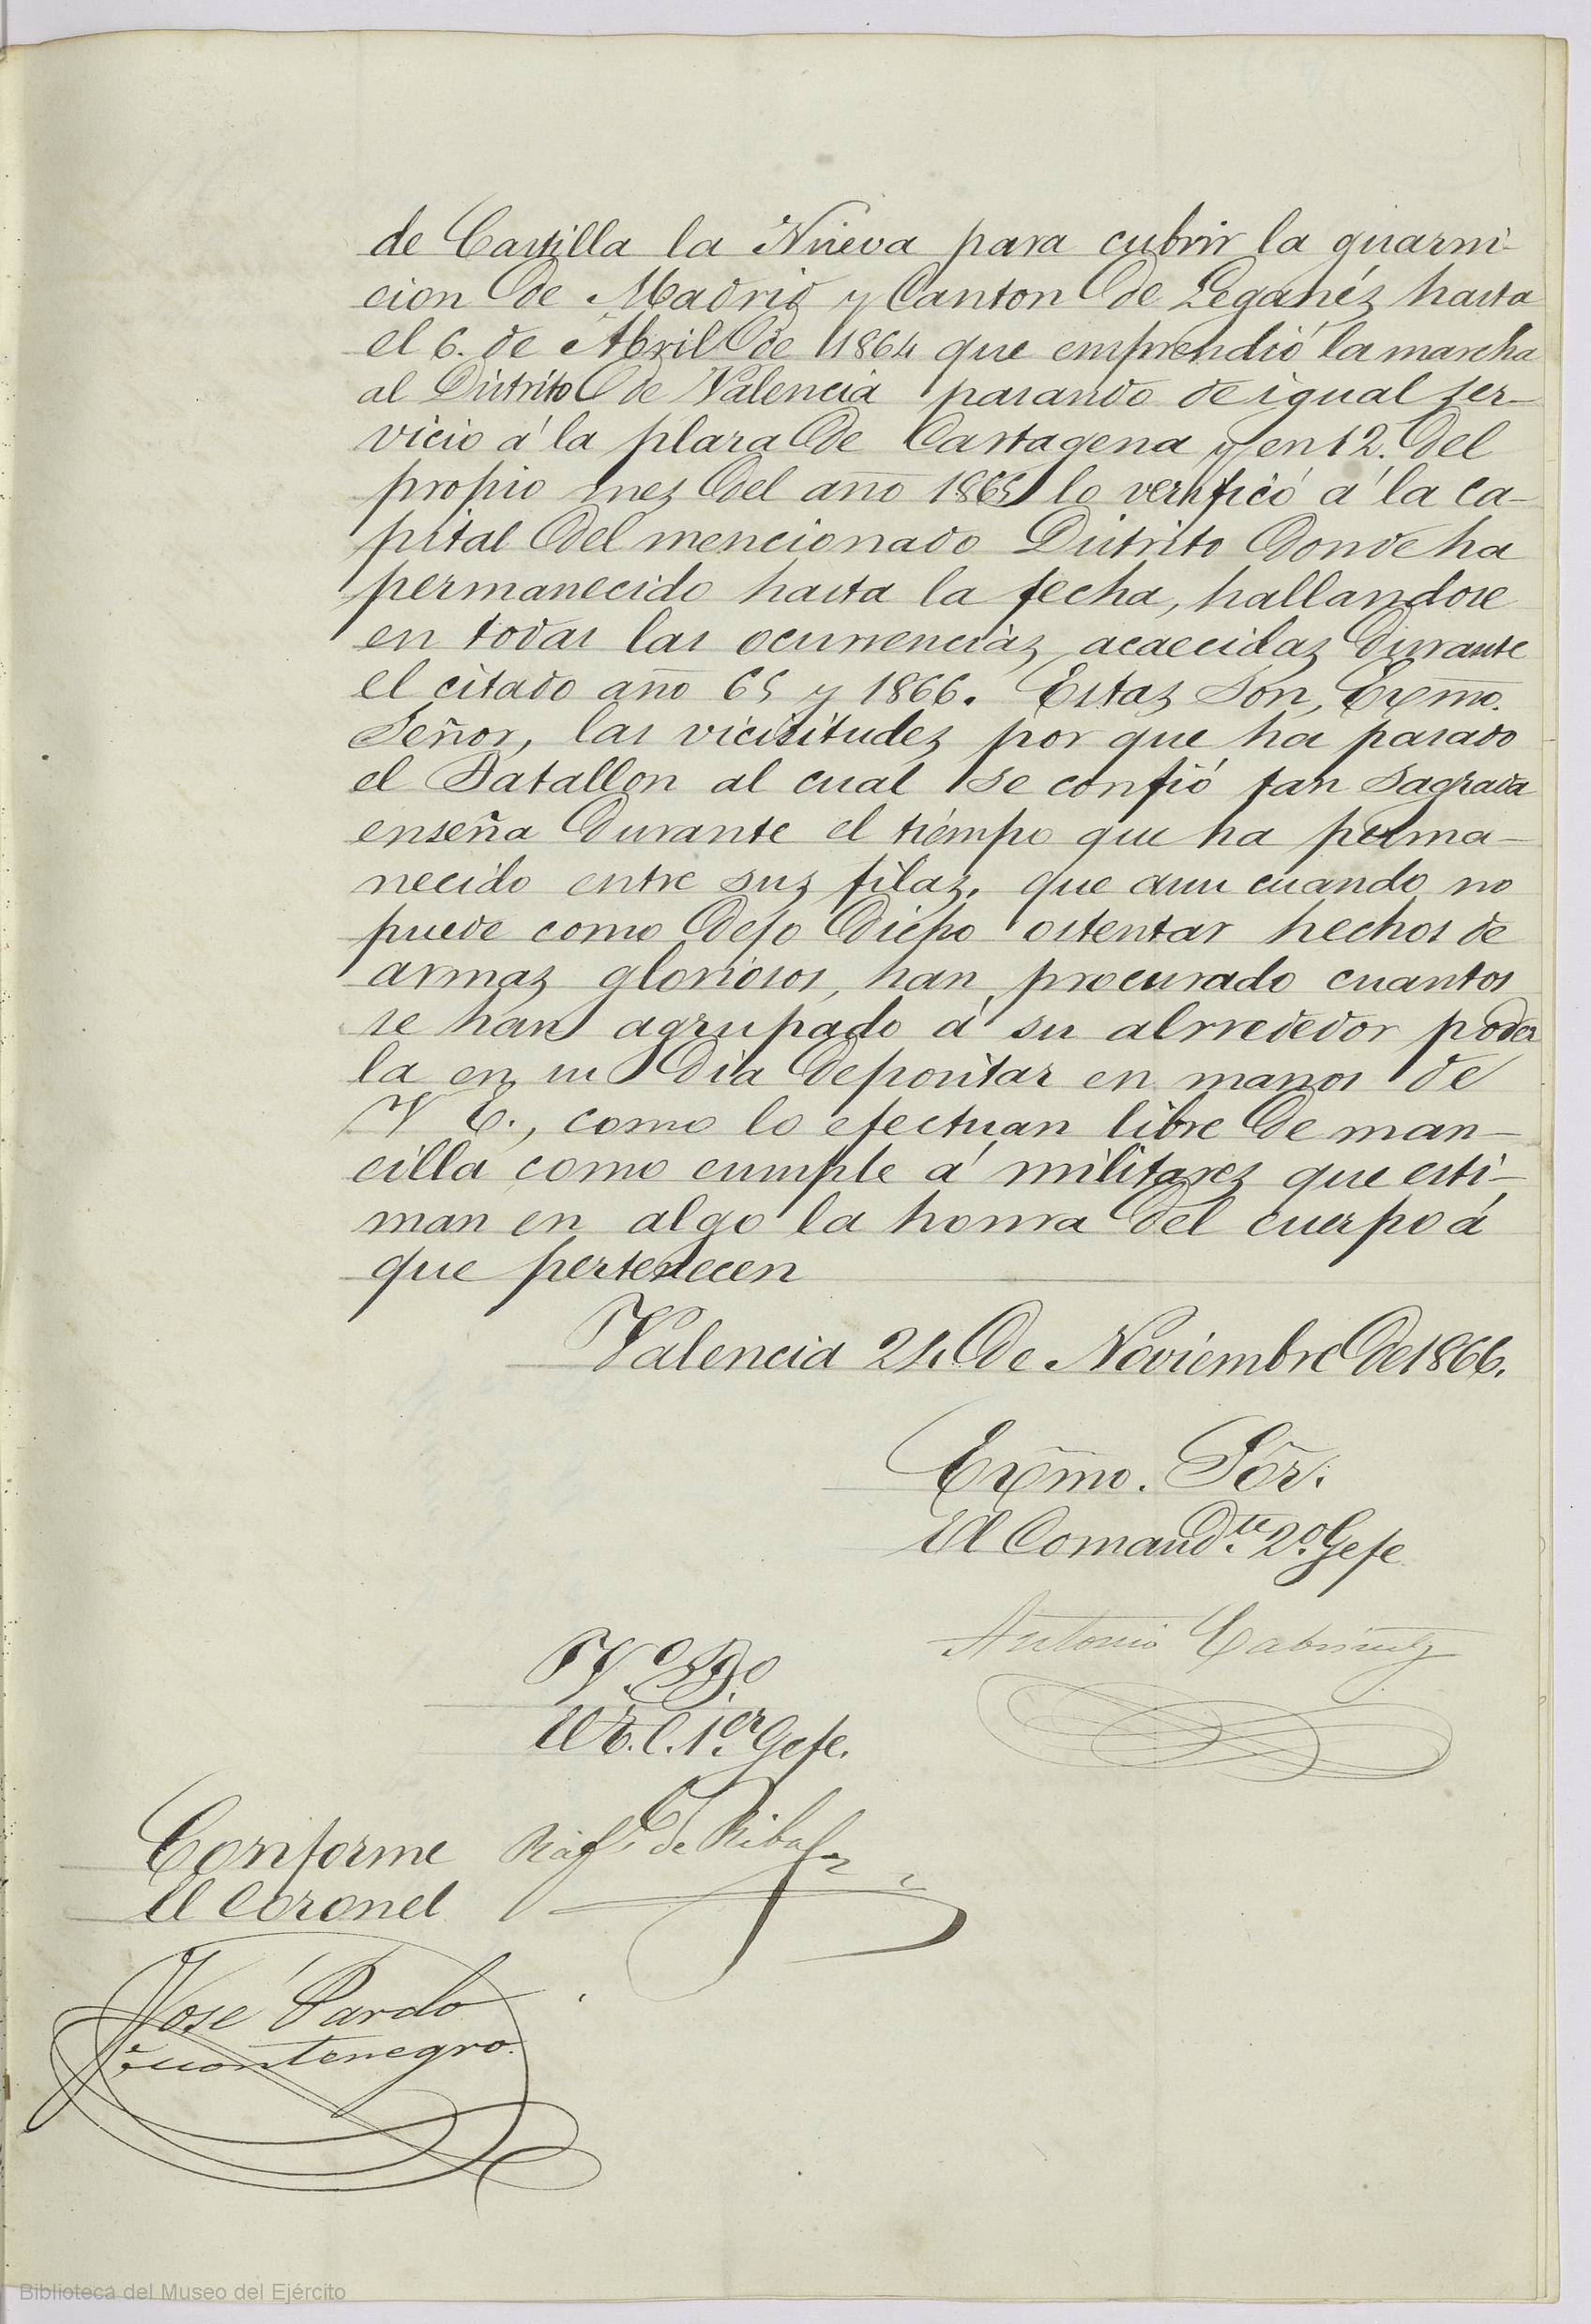 de Castilla la Nueva para cubrir la guarni-
cion de Madrid y Canton de Leganés hasta
el 6. de Abril de 1864 que emprendió la marcha
al Distrito de Valencia pasando de igual ser-
vicio á la plaza de Cartagena y en 12. del
propio mes del año 1865 lo verificó á la ca-
pital del mencionado Distrito donde ha
permanecido hasta la fecha, hallandose
en todas las ocurrencias acaecidas durante
el citado año 65 y 1866. Estas son, Exmo.
Señor, las vicisitudes por que ha pasado
el Batallon al cual se confió tan sagrada
enseña durante el tiempo que ha perma-
necido entre sus filas, que aun cuando no
puede como dejo dicho ostentar hechos de
armas gloriosos, han procurado cuantos
se han agrupado á su alrrededor poder
la en su dia depositar en manos de
V E., como lo efectuan libre de man-
cilla como cumple á militares que esti-
man en algo la honra del cuerpo á
que pertenecen
Valencia 24 de Noviembre de 1866.
Exmo. Sor.
El Comandte. 2º. Gefe
Antonio
Vº. Bº.
El T. C. 1er. Gefe.
Rafl. de
Conforme
El Coronel
José Pardo
Montenegro.
Biblioteca del Museo del Ejército